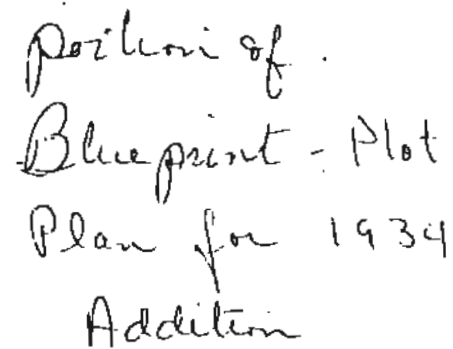 Portion of
Blueprint - Plot
Plan for 1934
Addition